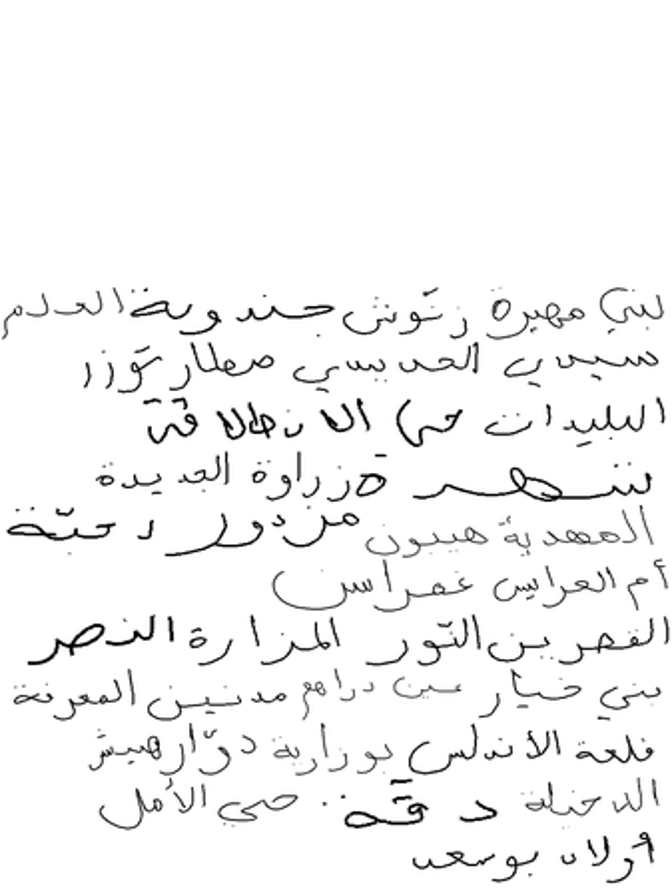 لبني مهيرة زنوش جندوبة العلام
سيدي الحديسي صطار توزر
البليدات حي الانطلاقة
زراوة الجديدة
المهدية هيبون مزدور رحبة
أم العرايس غمراسن
القصرين النور المزارة النصر
بني خيار عين دراهم مدنين المعرفة
قلعة الأندلس بوزارية دوار هيش
الدخيلة دقة حي الأمل
أولاد بوسعد